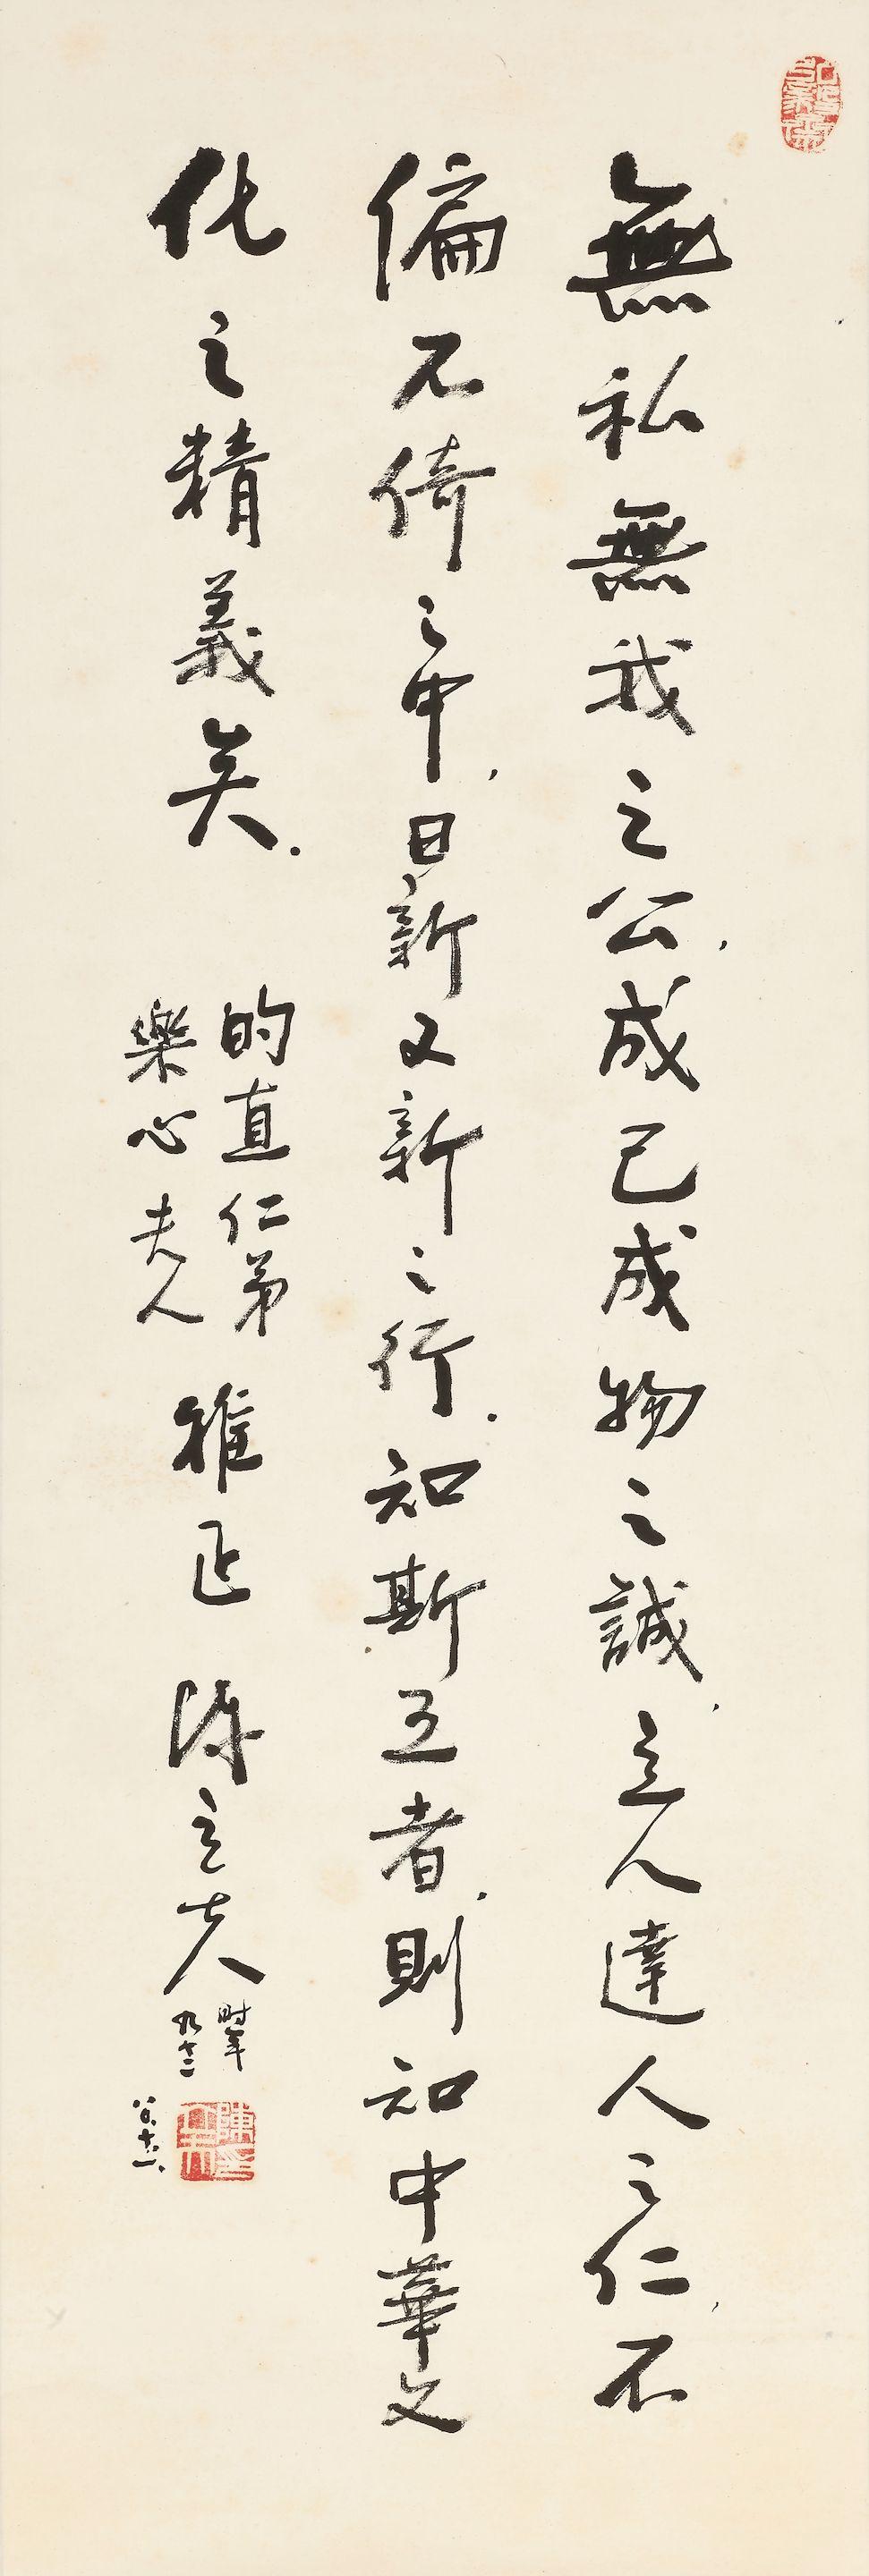 無私無我之公,成己成物之誠,立人達人之仁,不
偏不倚之中,日新又新之行.知斯五者,則知中華文
化之精義矣.
昀直仁弟
樂心夫人
雅正
陳立夫
時年
九十二
八十、十一、
陳立夫印